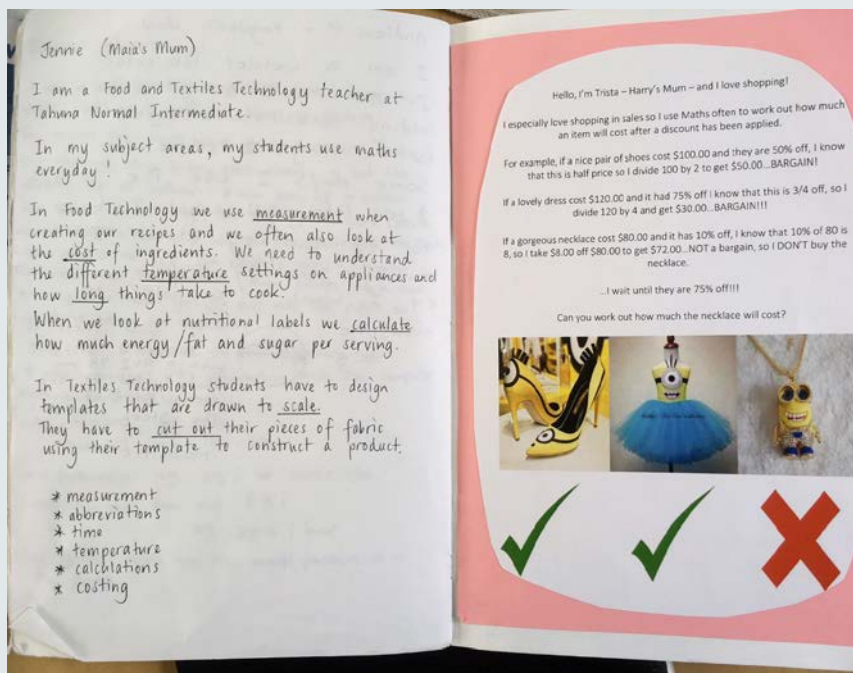 Jennie (Maia's Mum)
I am a Food and Textiles Technology teacher at
Tahuna Normal Intermediate.
In my subject areas, my students use maths
everyday!
In Food Technology we use measurement when
creating our recipes and we often also look at
the cost of ingredients. We need to understand
the different temperature settings on appliances and
how long things take to cook.
When we look at nutritional labels we calculate
how much energy/fat and sugar per serving.
In Textiles Technology students have to design
templates that are drawn to scale.
They have to cut out their pieces of fabric
using their template to construct a product.
* measurement
* abbreviations
* time
* temperature
* calculations
* costing
Hello, I'm Trista – Harry's Mum – and I love shopping!
I especially love shopping in sales so I use Maths often to work out how much
an item will cost after a discount has been applied.
For example, if a nice pair of shoes cost $100.00 and they are 50% off, I know
that this is half price so I divide 100 by 2 to get $50.00...BARGAIN!
If a lovely dress cost $120.00 and it had 75% off I know that this is 3/4 off, so I
divide 120 by 4 and get $30.00...BARGAIN!!!
If a gorgeous necklace cost $80.00 and it has 10% off, I know that 10% of 80 is
8, so I take $8.00 off $80.00 to get $72.00...NOT a bargain, so I DON'T buy the
necklace.
...I wait until they are 75% off!!!
Can you work out how much the necklace will cost?